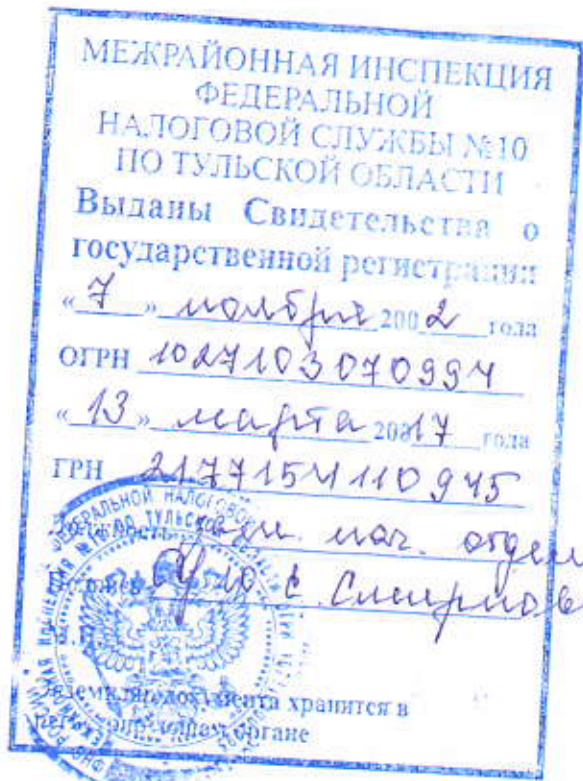 МЕЖРАЙОННАЯ ИНСПЕКЦИЯ
ФЕДЕРАЛЬНОЙ
НАЛОГОВОЙ СЛУЖБЫ №10
ПО ТУЛЬСКОЙ ОБЛАСТИ
Выданы Свидетельства о
государственной регистрации
« 7 » ноября 2002 года
ОГРН 1027103070994
« 13 » марта 2017 года
ГРН 2177154110945
Должность зам. нач. отдел
Подпись Ю.С. Смирнов
М.П.
Экземпляр документа хранится в
регистрирующем органе